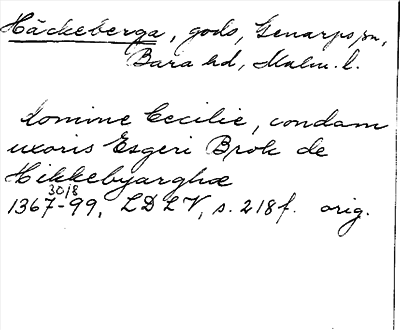 Häckeberga, gods, Genarps sn,
Bara hd, Malm. l.
domine Cecilie, condam
uxoris Esgeri Brok de
Hikkebyarghæ
30/8
1367-99, LDLV, s. 218f. orig.